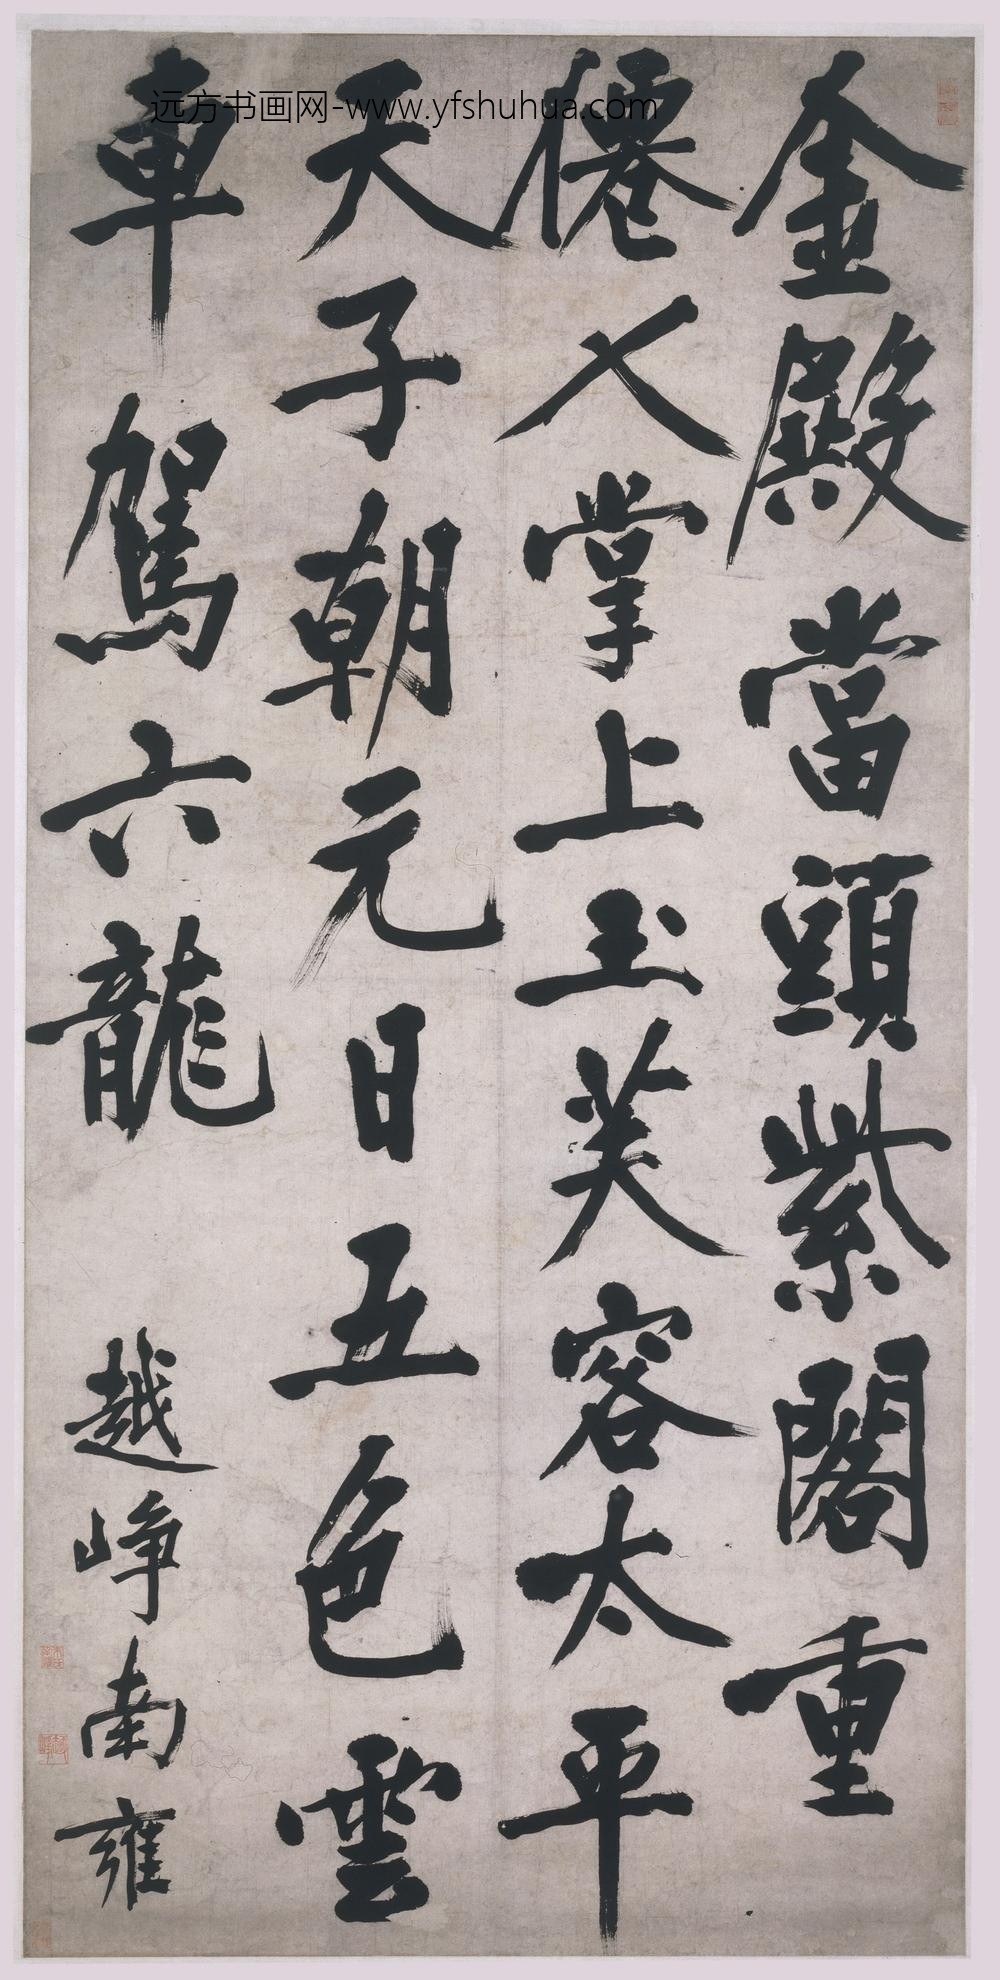 远方书画网-www.yfshuhua.com
金殿當頭紫閣重
僊人掌上玉芙容太平
天子朝元日五色雲
車駕六龍
越崢南雍